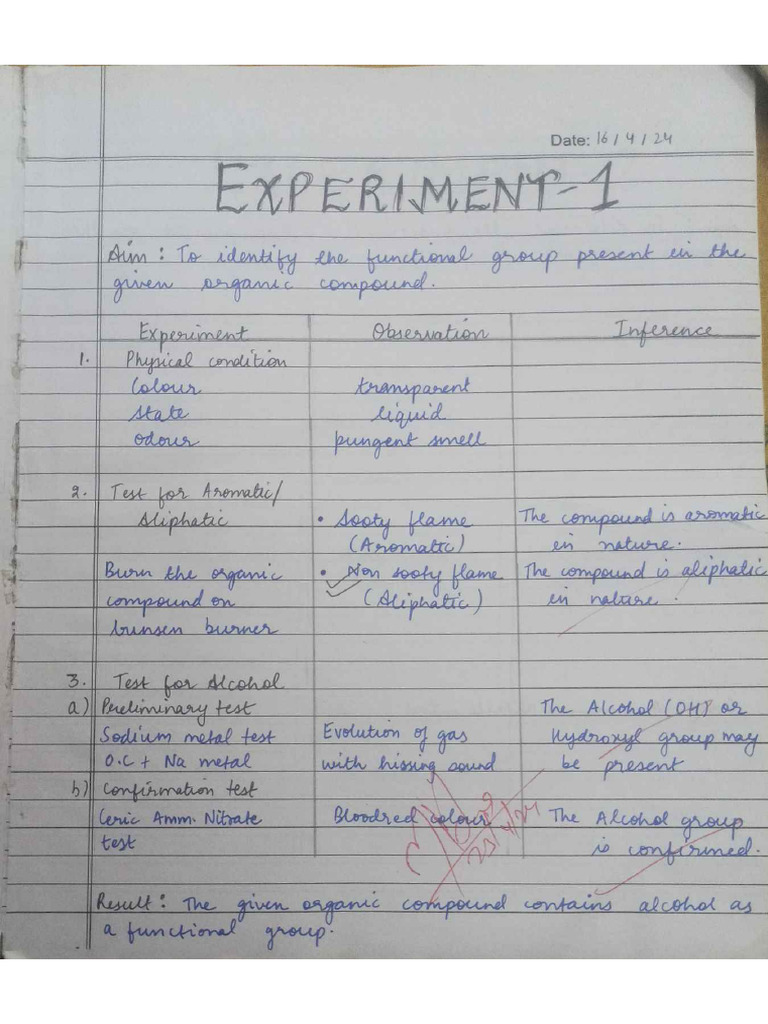 Date: 16 / 4 / 24
EXPERIMENT-1
Aim : To identify the functional group present in the
given organic compound.
Experiment Observation Inference
1. Physical condition
Colour transparent
State liquid
Odour pungent smell
2. Test for Aromatic/
Aliphatic • Sooty flame The compound is aromatic
(Aromattic) in nature.
Burn the organic • Non sooty flame The compound is aliphatic
compound on (Aliphatic) in nature.
bunsen burner
3. Test for Alcohol
a) Preliminary test The Alcohol (OH) or
Sodium metal test Evolution of gas Hydroxyl group may
O.C + Na metal with hissing sound be present
b) Confirmation test
Ceric Amm. Nitrate Bloodred colour The Alcohol group
test is confirmed.
23/4/24
Result : The given organic compound contains alcohol as
a functional group.